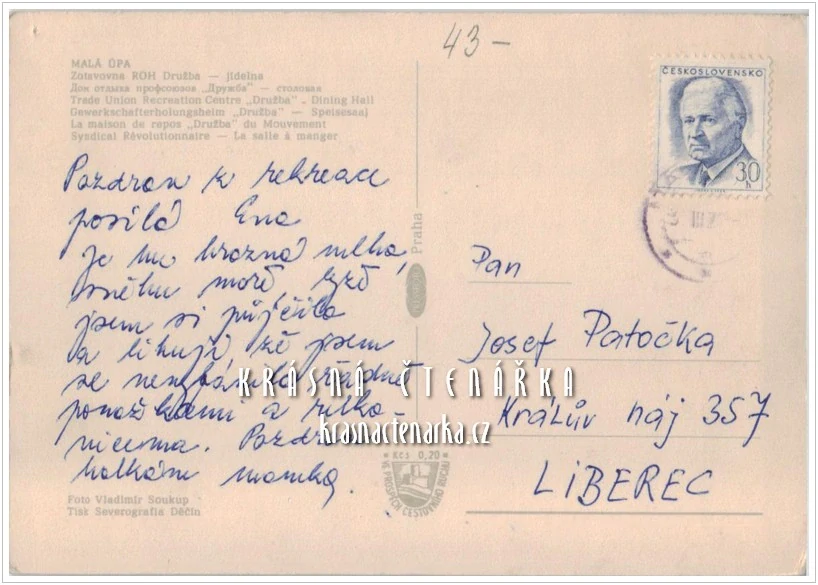 43-
MALÁ ÚPA
Zotavovna ROH Družba — jídelna
Дом отдыха профсоюзов „Дружба" — столовая
Trade Union Recreation Centre „Družba" - Dining Hall
Gewerkschafterholungsheim „Družba" — Speisesaal
La maison de repos „Družba" du Mouvement
Syndical Révolutionnaire — La salle à manger
ČESKOSLOVENSKO
30
h
Pozdrav z rekreace
posílá Eva
Je tu hrozná mlha,
sněhu moře, lyže
jsem si půjčila
a lituji, že jsem
se
ponožkami a
Pozdr
holkám
Praha
Pan
Josef Patočka
Králův háj 357
LIBEREC
KRÁSNÁ ČTENÁŘKA
krasnactenarka.cz
Kčs 0,20
VE PROSPĚCH CESTOVNÍHO RUCHU
Foto Vladimír Soukup
Tisk Severografia Děčín